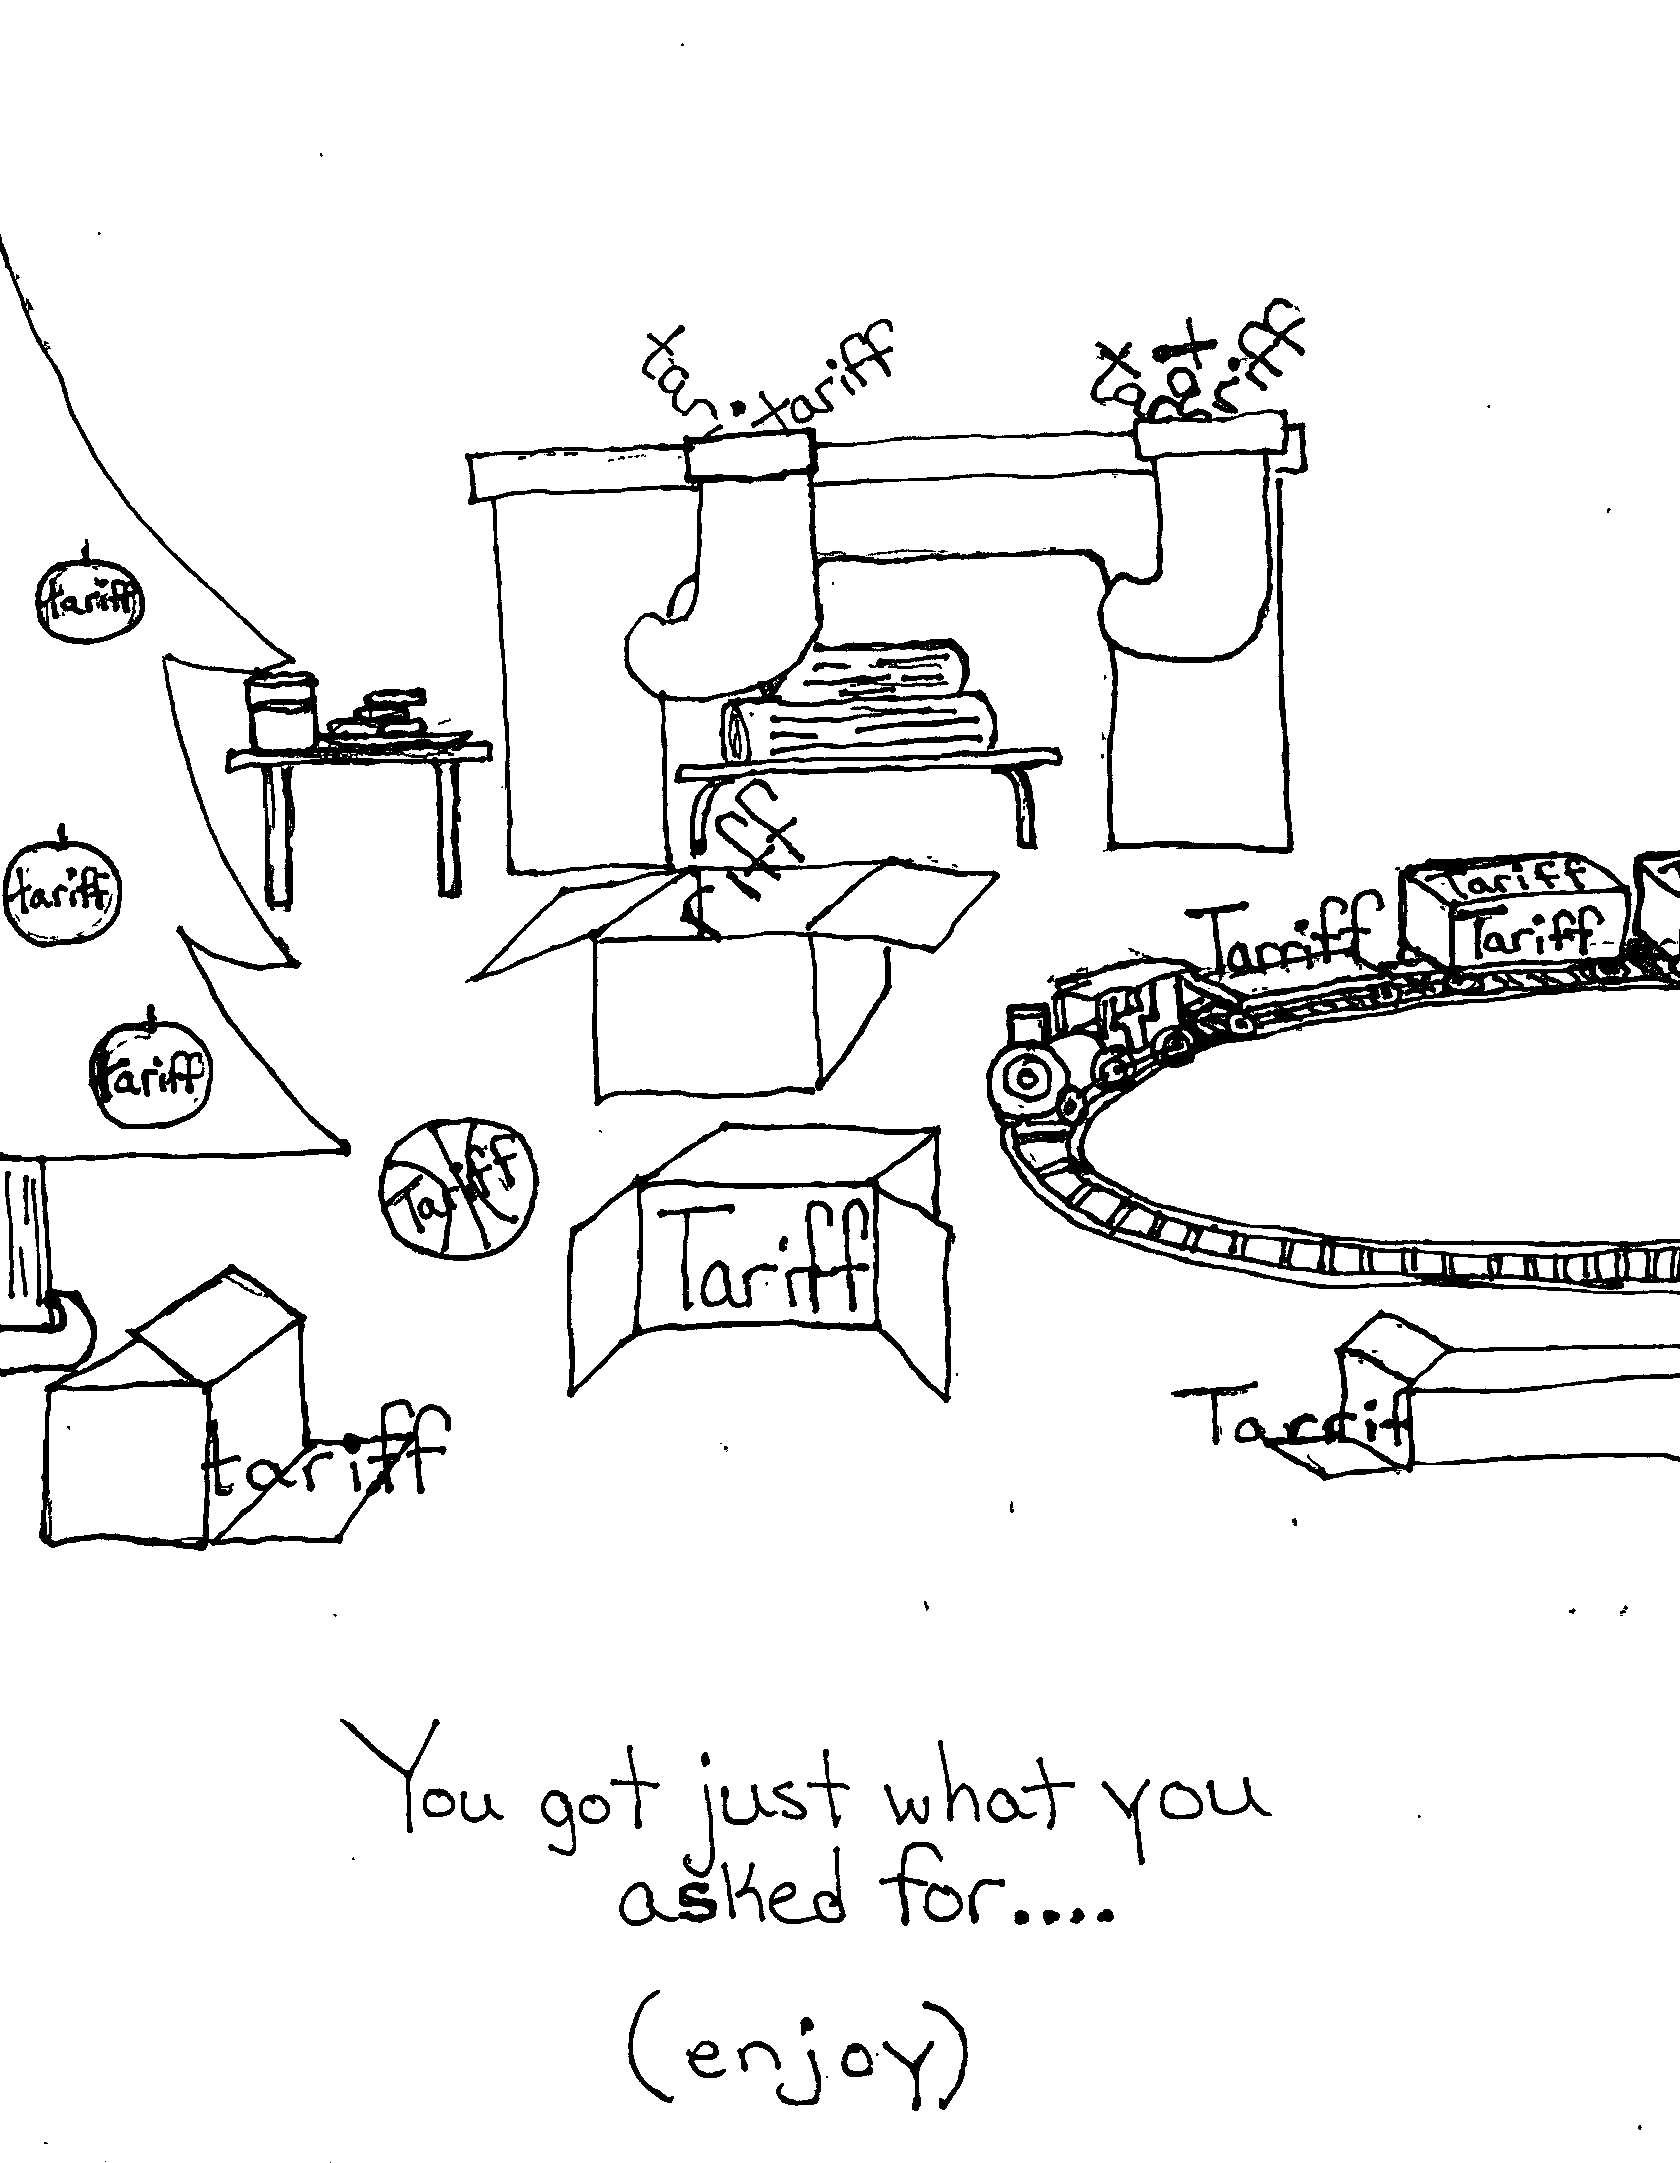 tari
tariff
ta
tariff
tariff
tariff
riff
Tariff
Tariff
Tarriff
Tariff
Tariff
Tariff
tariff
Tarrif
You got just what you
asked for....
(enjoy)